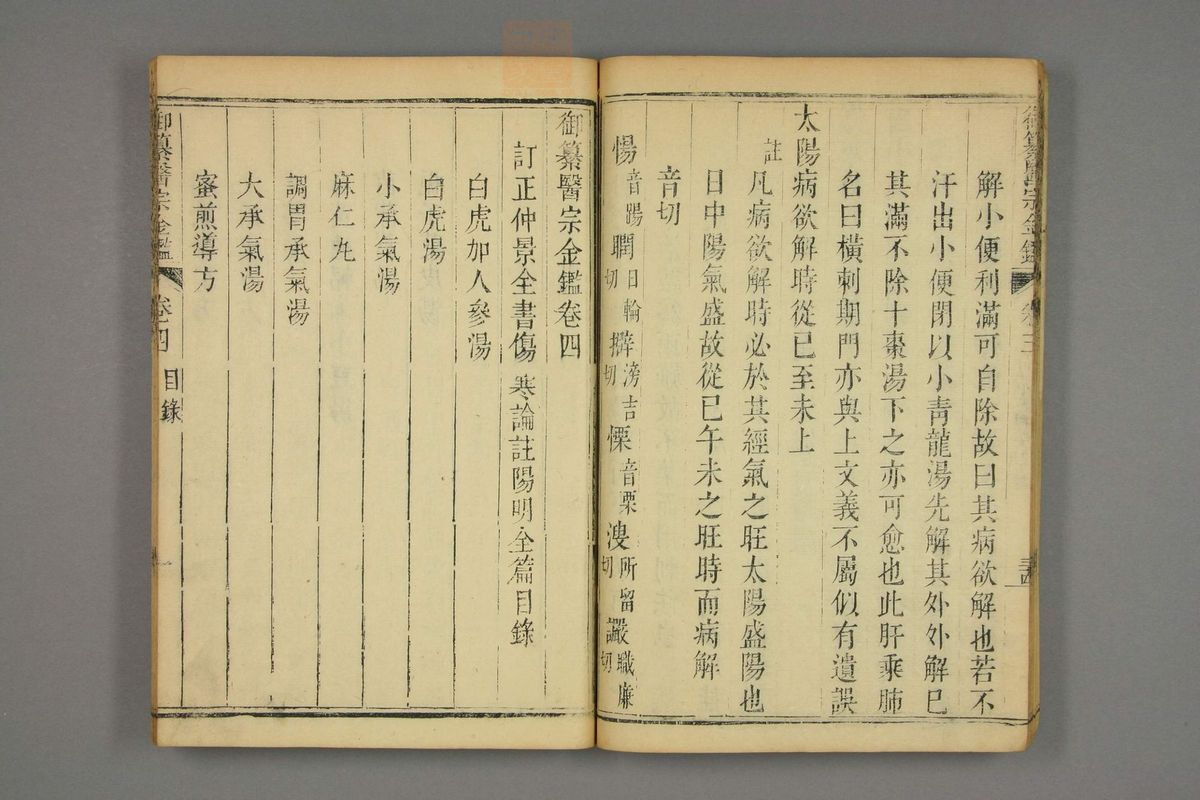 解小便利滿可自除故曰其病欲解也若不
汗出小便閉以小青龍湯先解其外外解已
其滿不除十棗湯下之亦可愈也此肝乘肺
名曰橫刺期門亦與上文義不屬似有遺誤
太陽病欲解時從巳至未上
註
凡病欲解時必於其經氣之旺太陽盛陽也
日中陽氣盛故從巳午未之旺時而病解
音切
惕音踢瞤日輪切擗滂吉切慄音栗溲所留切讝職廉切
御纂醫宗金鑑卷四
訂正仲景全書傷寒論註陽明全篇目錄
白虎加人參湯
白虎湯
小承氣湯
麻仁丸
調胃承氣湯
大承氣湯
蜜煎導方
御纂醫宗金鑑 卷四 目錄 一